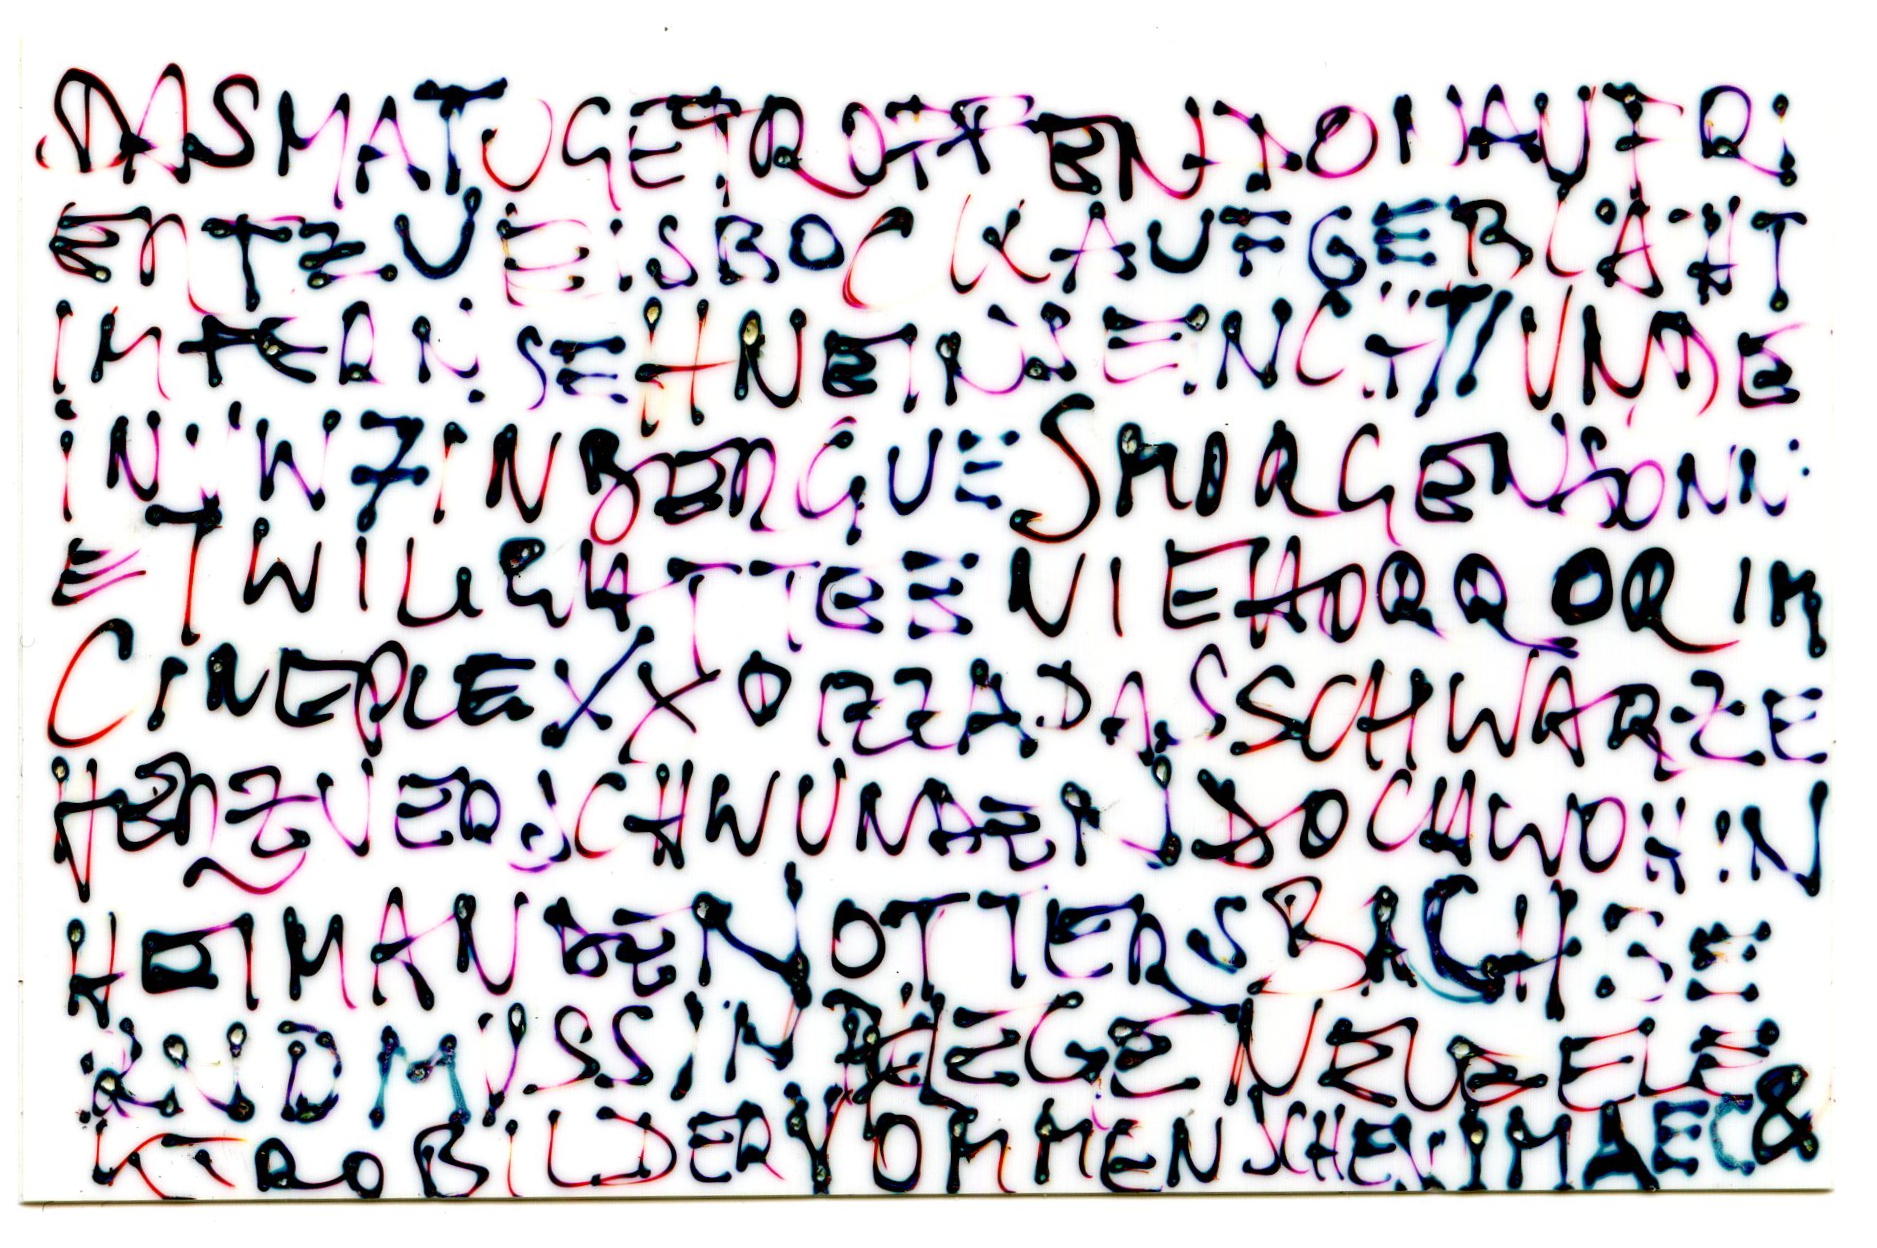 DASMATUGETROFFENDONAUFRI
ENTZUEISBOCKAUFGEBLÄHT
IMFERNSEHNEINSEINCT//UNDE
INWZINBERGUESMORGENSONN
ETWILIGHTTEENIEHORROR IM
CINEPLEXXOPIZZADASSCHWARZE
HERZVERSCHWUNDENDOCHWOHIN
HOTMANDENOTTERSBACHBE
RNDMUSSINPFLEGENEUEELE
KTROBILDERVOMMENSCHENIMAEC&